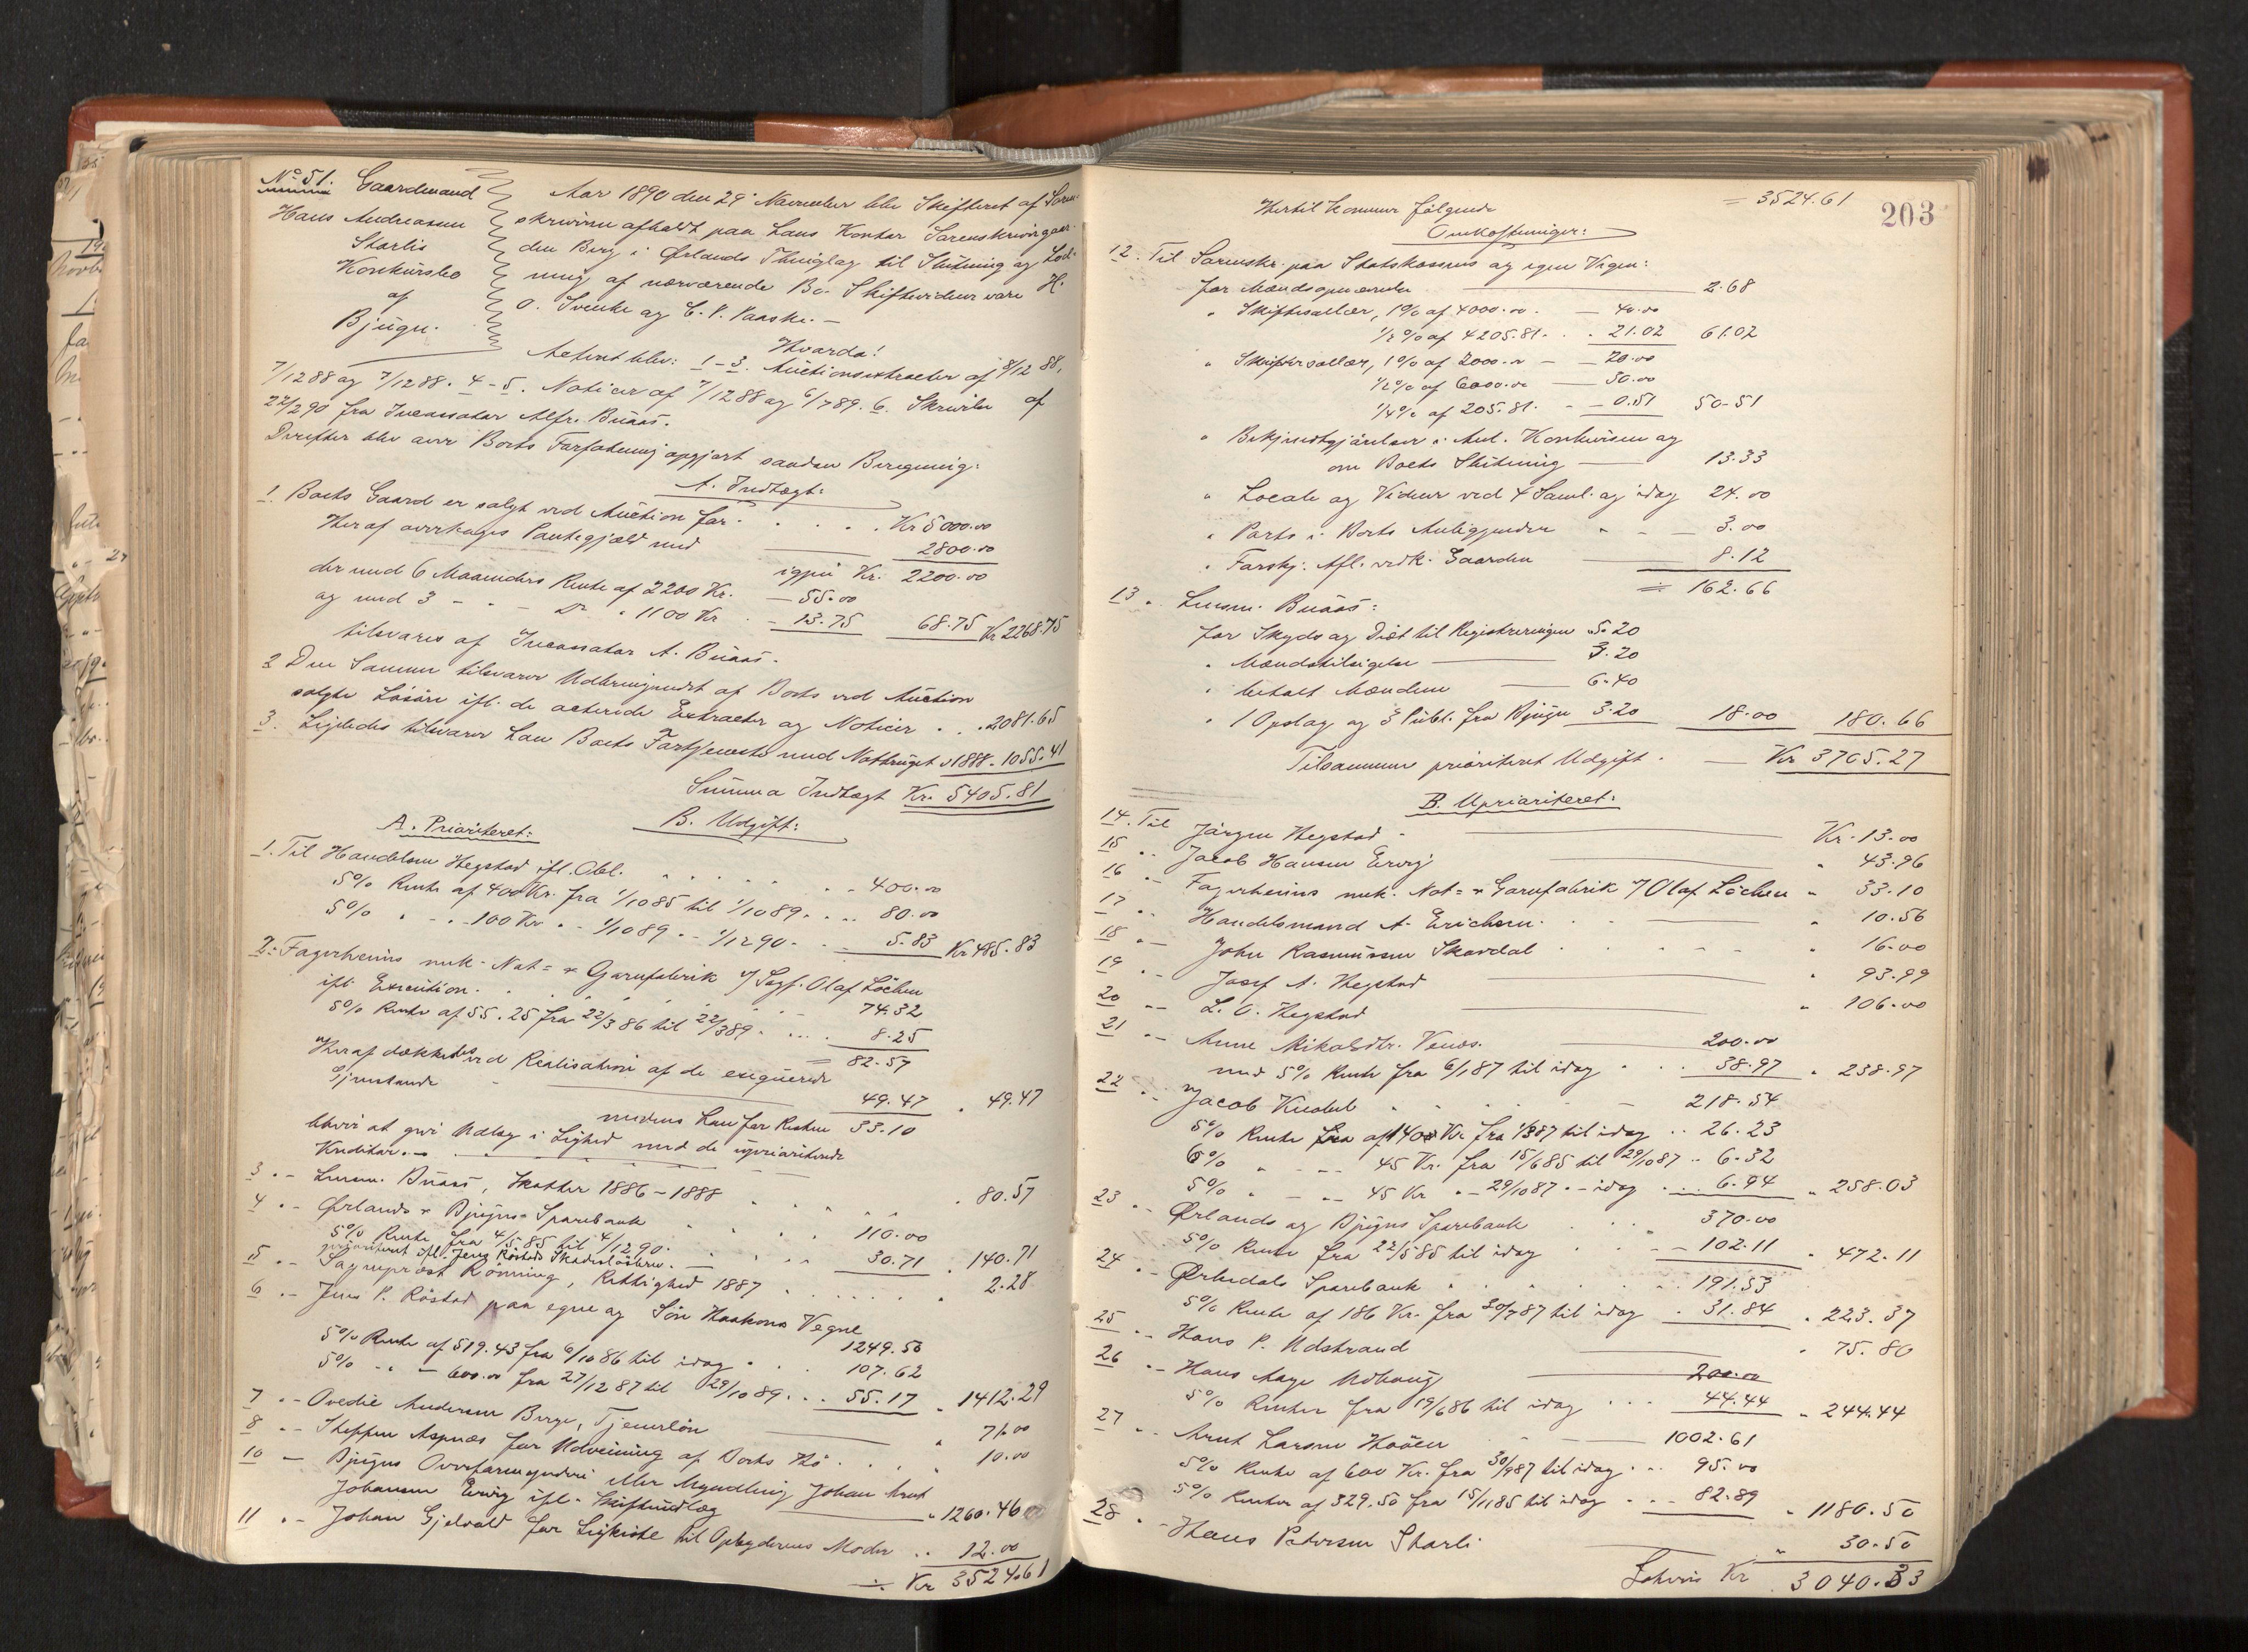 No 51. Gaardmand
Hans Andreassen
Starlis
Konkursbo
af
Bjugn.
Aar 1890 den 29 November blev Skifteret af Soren-
skriveren afholdt paa hans Kontor Sorenskrivergaar-
den Berg i Ørlands Thinglag til Slutning og Lod-
ning af nærværende Bo. Skiftevidner vare H.
O. Svenke og C. P. Paaske. –
Hvorda!
Acteret blev: 1–3. Auctionsextracter af 8/12 88,
7/12 88 og 7/12 88. 4–5. Noticer af 7/12 88 og 6/7 89. 6. Skrivelse af
22/2 90 fra Incassator Alfr. Buaas.
Derefter blev over Boets Forfatning opgjort saadan Beregning:
A. Indtægt:
1. Boets Gaard er solgt ved Auction for . . . . . Kr 5000.00
Heraf overtages Pantegjæld med 2800.00
igjen Kr. 2200.00
der med 6 Maaneders Rente af 2200 Kr. – 55.00
og med 3 – " – Do " 1100 Kr . – 13.75 68.75 Kr 2268.75
tilsvares af Incassator A. Buaas.
2 Den Samme tilsvarer Udbringendet af Boets ved Auction
solgte Løsøre ifl. de acterede Extracter og Noticer . . . 2081.65
3. Ligeledes tilsvarer han Boets Fortjeneste med Notbruget i 1888 - 1055.41
Summa Indtægt Kr. 5405.81
B. Udgift:
A. Prioriteret:
1. Til Handelsm Hegstad ifl. Obl. . . . . . . . 400.00
5% Rente af 400 Kr. fra 1/10 85 til 1/10 89 . . . . 80.00
5% " - " 100 Kr " - 1/10 89 - - 1/12 90 - . . 5.83 Kr 485.83
2 – Fagerheims mek. Not- & Garnfabrik v/ Sagf. Olaf Löchen
ifl. Execution . . . . . . 74.32
5% Rente af 55.25 fra 22/3 86 til 22/3 89 . . . . . 8.25
= 82.57
Heraf dækkedes ved Realisation af de exequerede
Gjenstande 49.47 " 49.47
medens han for Resten 33.10
bliver at give Udlæg i Lighed med de uprioriterede
Kreditor. –
3 . – Lensm. Buaas, Skatter 1886–1888 . . . . 80.57
4 . – Ørlands & Bjugns Sparebank . . . . 110.00
5% Rente fra 4/5 85 til 4/12 90 .
prioriteret ifl. Jens Röstads Skadesløsbrev. – . . 30.71 . 140.71
5 . – Sogneprest Rönning, Rettighed 1887 . . . . . 2.28
6 . – Jens P. Röstad paa egne og Sön Haakons Vegne
1249.50
5% Rente af 519.43 fra 6/10 86 til idag . . . 107.62
5% - " - 600.00 fra 27/12 87 til 29/10 89 . . . 55.17 . 1412.29
7 . – Ovedie Andersen Berge, Tjenerlön 71.00
8 . – Steffen Aspnæs for Udveining af Boets Hö . . . 10.00
10 – Bjugns Overformynderi eller Myndling Johan Arnt
Johansen Ervig ifl. Skifteudlæg " 1260.46
11 . – Johan Gjelvold for Ligkiste til Opbyderens Moder . . 12.00
÷ Kr 3524.61
203
= 3524.61
Hertil kommer følgende
Omkostninger:
12. Til Sorenskr. paa Statskassens og egne Vegne:
for Mændsopnævnelse 2.68
" Skiftesallær, 1% af 4000.00 . – 40.00
1/2% af 4205.81 . . 21.02 61.02
" Skiftersallær, 1% af 2000.00 – 20.00
1/2% af 6000.00 – 30.00
1/4% af 205.81 . – 0.51 50-51
" Bekjendtgjörelser i Anl. Konkursen og
om Boets Slutning 13.33
" Locale og Vidner ved 4 Saml. og idag 24.00
" Porto i Boets Anliggender " – – 3.00
" Forskj. Afl. vedk. Gaarden 8.12
= 162.66
13 . Lensm. Buaas:
for Skyds og Diæt til Registreringen " 5.20
" Mændstilsigelse 3.20
" betalt Mændene 6.40
" 1 Opslag og 3 Publ. fra Bjugn 3.20 18.00 180.66
Tilsammen prioriteret Udgift . – Kr 3705.27
B. Uprioriteret:
14. Til Jörgen Hegstad – Kr. 13.00
15 . . Jacob Hansen Ervig " 43.96
16 . – Fagerheims mek. Not- & Garnfabrik v/ Olaf Löchen " 33.10
17 . . Handelsmand A. Erichsen . . " 10.56
18 . – John Rasmussen Skavdal . . . " 16.00
19 . . Josef A. Hegstad " 93.99
20 . – L. C. Hegstad " 106.00
21 . – Anne Mikalsdtr. Venæs. 200.00
med 5% Rente fra 6/1 87 til idag . . . 38.97 " 238.97
22 . . Jacob 218.54
5% Rente af 140 Kr. fra 1/3 87 til idag . . 26.23
6% " – " 45 Kr. fra 15/6 85 til 29/10 87 . . 6.32
5% " – " 45 Kr " – 29/10 87 " – idag . . . 6.94 " 258.03
23 . – Ørlands og Bjugns Sparebank . . . 370.00
5% Rente fra 22/5 85 til idag . . – 102.11 " 472.11
24 . – Ørkedals Sparebank . . . . . 191.53
5% Rente af 186 Kr. fra 30/7 87 til idag . 31.84 " 223.37
25 . – Hans P. Udstrand " 75.80
26 . – Hans Aage Udhaug 200.00
5% Renter fra 19/6 86 til idag . . . 44.44 " 244.44
27 . . Arnt Larsen Hoven 1002.61
5% Rente af 600 Kr. fra 30/9 87 til idag . . . 95.00
5% Renter af 329.50 fra 15/11 85 til idag . . . 82.89 " 1180.50
28 . – Hans Petersen Starli " 30.50
Latenis Kr 3040.33